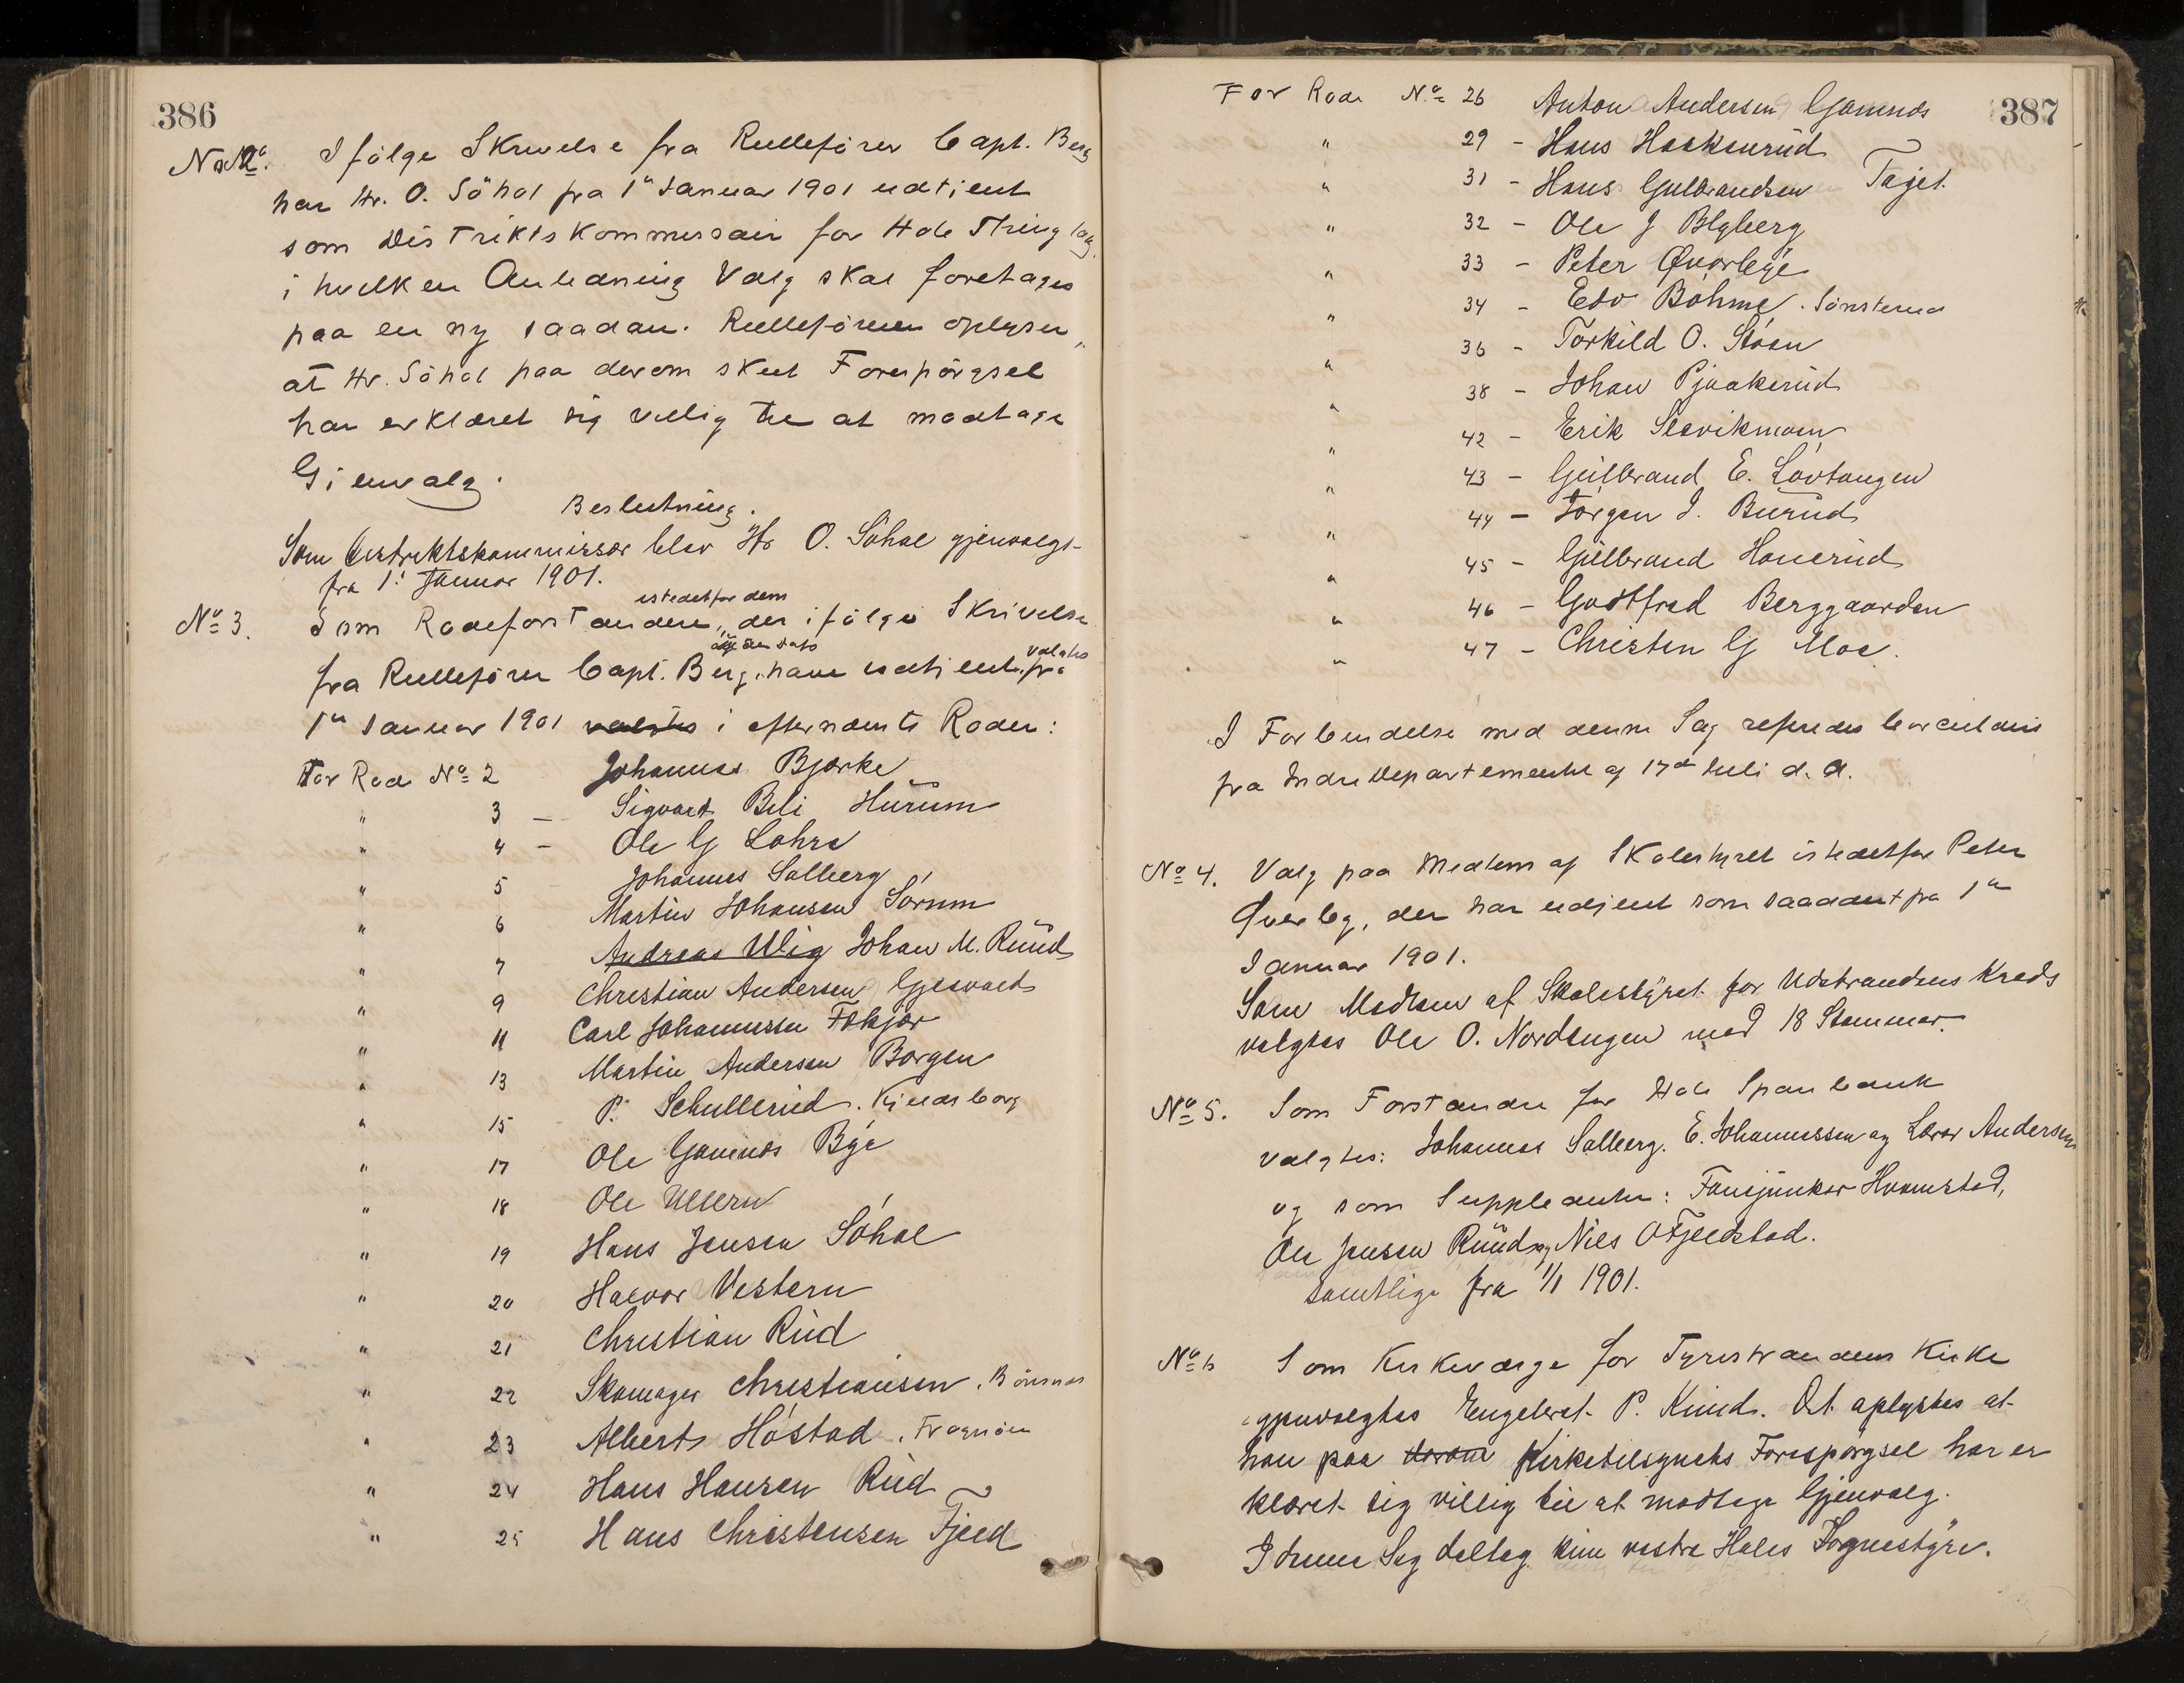 386
No 2. Ifölge Skrivelse fra Rulleförer Capt. Berg
har Hr. O. Söhol fra 1ste Januar 1901 udtjent
som Distriktskommissair for Hole Thinglag,
i hvilken Anledning Valg skal foretages
paa en ny saadan. Rulleföreren oplyser,
at Hr. Söhol paa derom skeet Forespörgsel
har erklæret sig villig til at modtage
Gjenvalg.
Beslutning.
Som Distriktskommissær blev Hr O. Söhol gjenvalgt
fra 1. Januar 1901.
istedetfor dem
No 3. Som Rodeforstandere, der ifölge Skrivelse
valgtes
fra Rulleförer Capt. Berg, have udtjent fra
1ste Januar 1901 valgtes i efternævnte Roder:
For Rode No 2 Johannes Bjørke
" 3 - Sigvart Bili Hurum
" 4 - Ole G Lohre
" 5 Johannes Solberg
" 6 Martin Johansen Sörum
" 7 Andreas Ulig Johan M. Ruud
" 9 Christian Andersen Gjesvold
" 11 Carl Johannesen
" 13 Martin Andersen Borgen
" 15 P. Schullerud.
" 17 Ole Gomnæs Bye
" 18 Ole Ullern
" 19 Hans Jensen Söhol
" 20 Halvor Vestern
" 21 Christian Rud
" 22 Skomager Christiansen. Bönsnæs
" 23 Albert Höstad.
" 24 Hans Hansen Rud
" 25 Hans Christensen Fjeld
387
For Rode No 26 Anton Andersen Gomnæs
" 29 - Hans Haakenrud
" 31 - Hans Gulbrandsen
" 32 - Ole J Blyberg
" 33 - Peter Øverbye
" 34 - Edv Böhme. Sönsterud
" 36 - Torkild O. Stöen
" 38 - Johan Pjaakerud
" 42 - Erik
" 43 - Gulbrand E. Lövtangen
" 44 - Jörgen J. Burud
" 45 - Gulbrand Honerud
" 46 - Godtfred Berggaarden
" 47 - Christen G Moe.
I Forbindelse med denne Sag refereredes Circulære
fra Indredepartementet af 17de Juli d. A.
No 4. Valg paa Medlem af Skolestyret istedetfor Peter
Øverby, der har udtjent som saadant fra 1ste
Januar 1901.
Som Medlem af Skolestyret for Udstrandens Kreds
valgtes Ole O. Nordengen med 18 Stemmer.
No 5. Som Forstandere for Hole Sparebank
valgtes: Johannes Solberg. E. Johannessen og Lærer Andersen
og som Suppleanter: Fanejunker Hvamstad,
Ole Jensen Ruud og Niels O Fjeldstad.
Samtlige fra 1/1 1901.
No 6 Som Kirkeværge for Tyristrandens Kirke
gjenvalgtes Engelbret P. Knud. Det oplystes at
han paa derom Kirketilsynets Forespörgsel har er
klæret sig villig til at modtage Gjenvalg.
I denne Sag deltog kun vestre Holes Sognestyre.